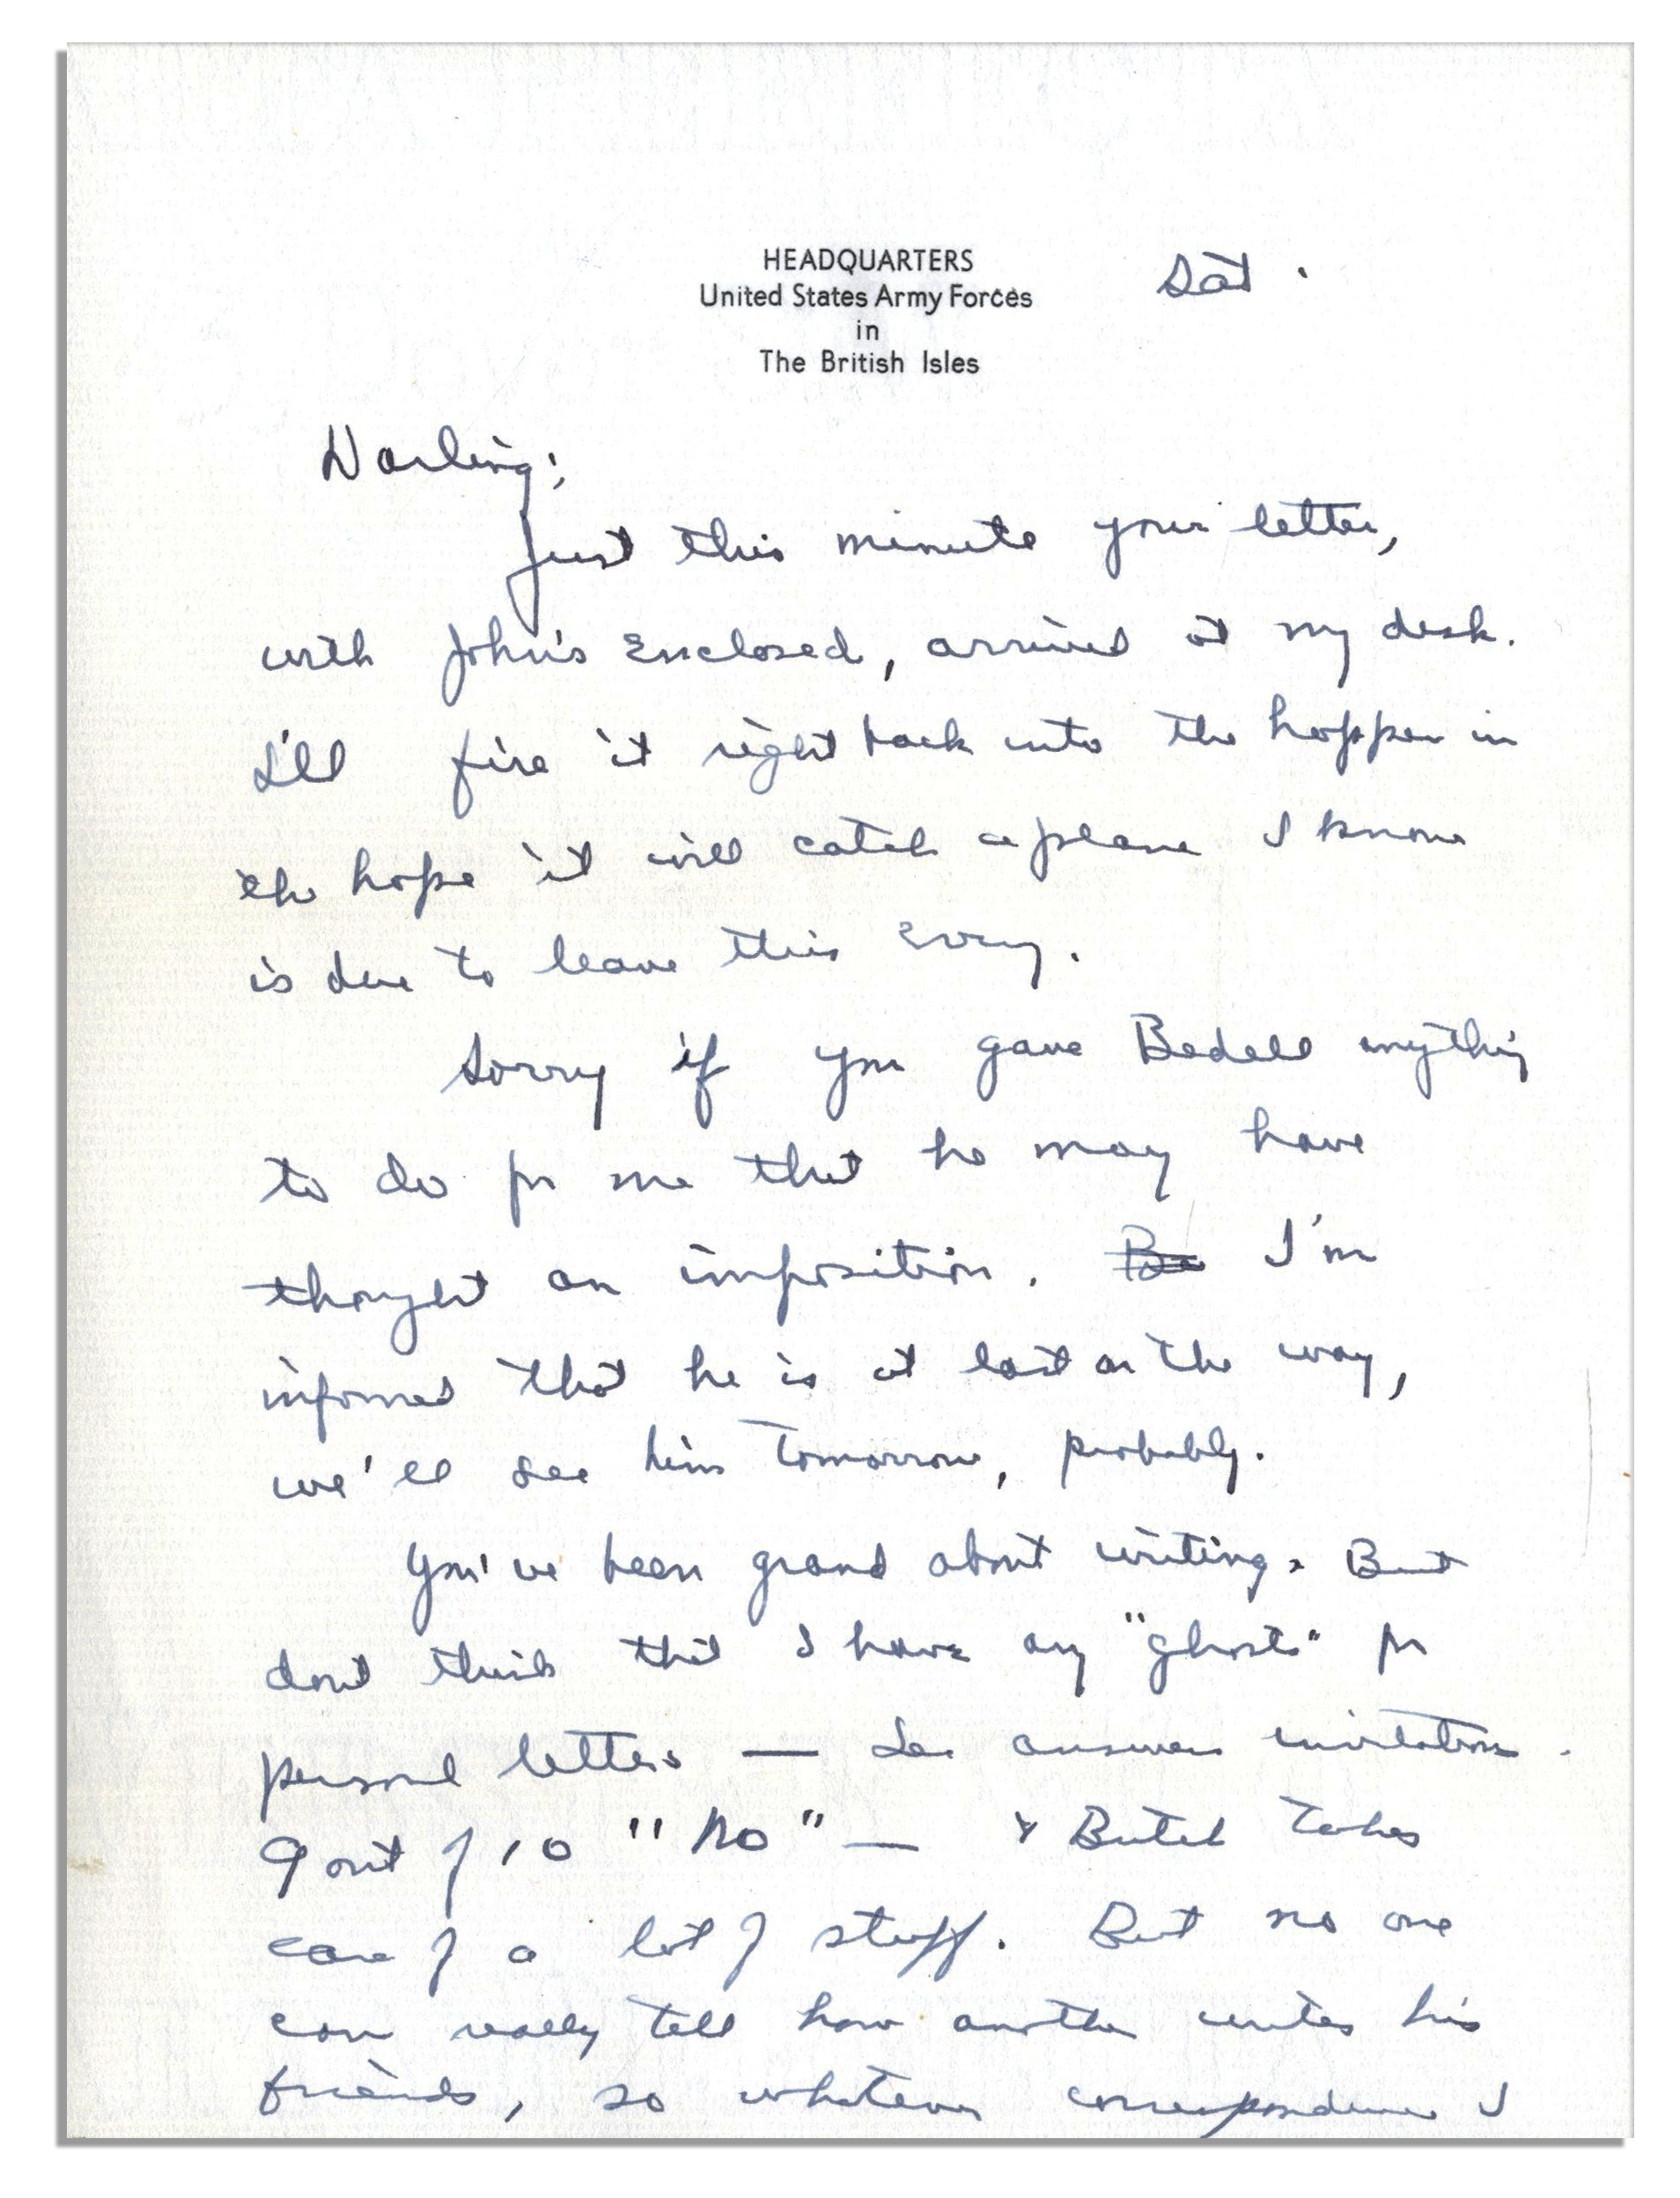 HEADQUARTERS
United States Army Forces
in
The British Isles
Sat.
Darling;
Just this minute your letter,
with John's enclosed, arrived at my desk.
I'll fire it right back into the hopper in
the hope it will catch a plane I know
is due to leave this evng.
Sorry if you gave Bedell anything
to do for me that he may have
thought an imposition. Be I'm
informed that he is at last on the way,
we'll see him tomorrow, probably.
You've been grand about writing. But
don't think that I have any "ghosts" for
personal letters — Lee answers invitations.
9 out of 10 "No" — & Butch takes
care of a lot of stuff. But no one
can really tell how another writes his
friends, so whatever correspondence I